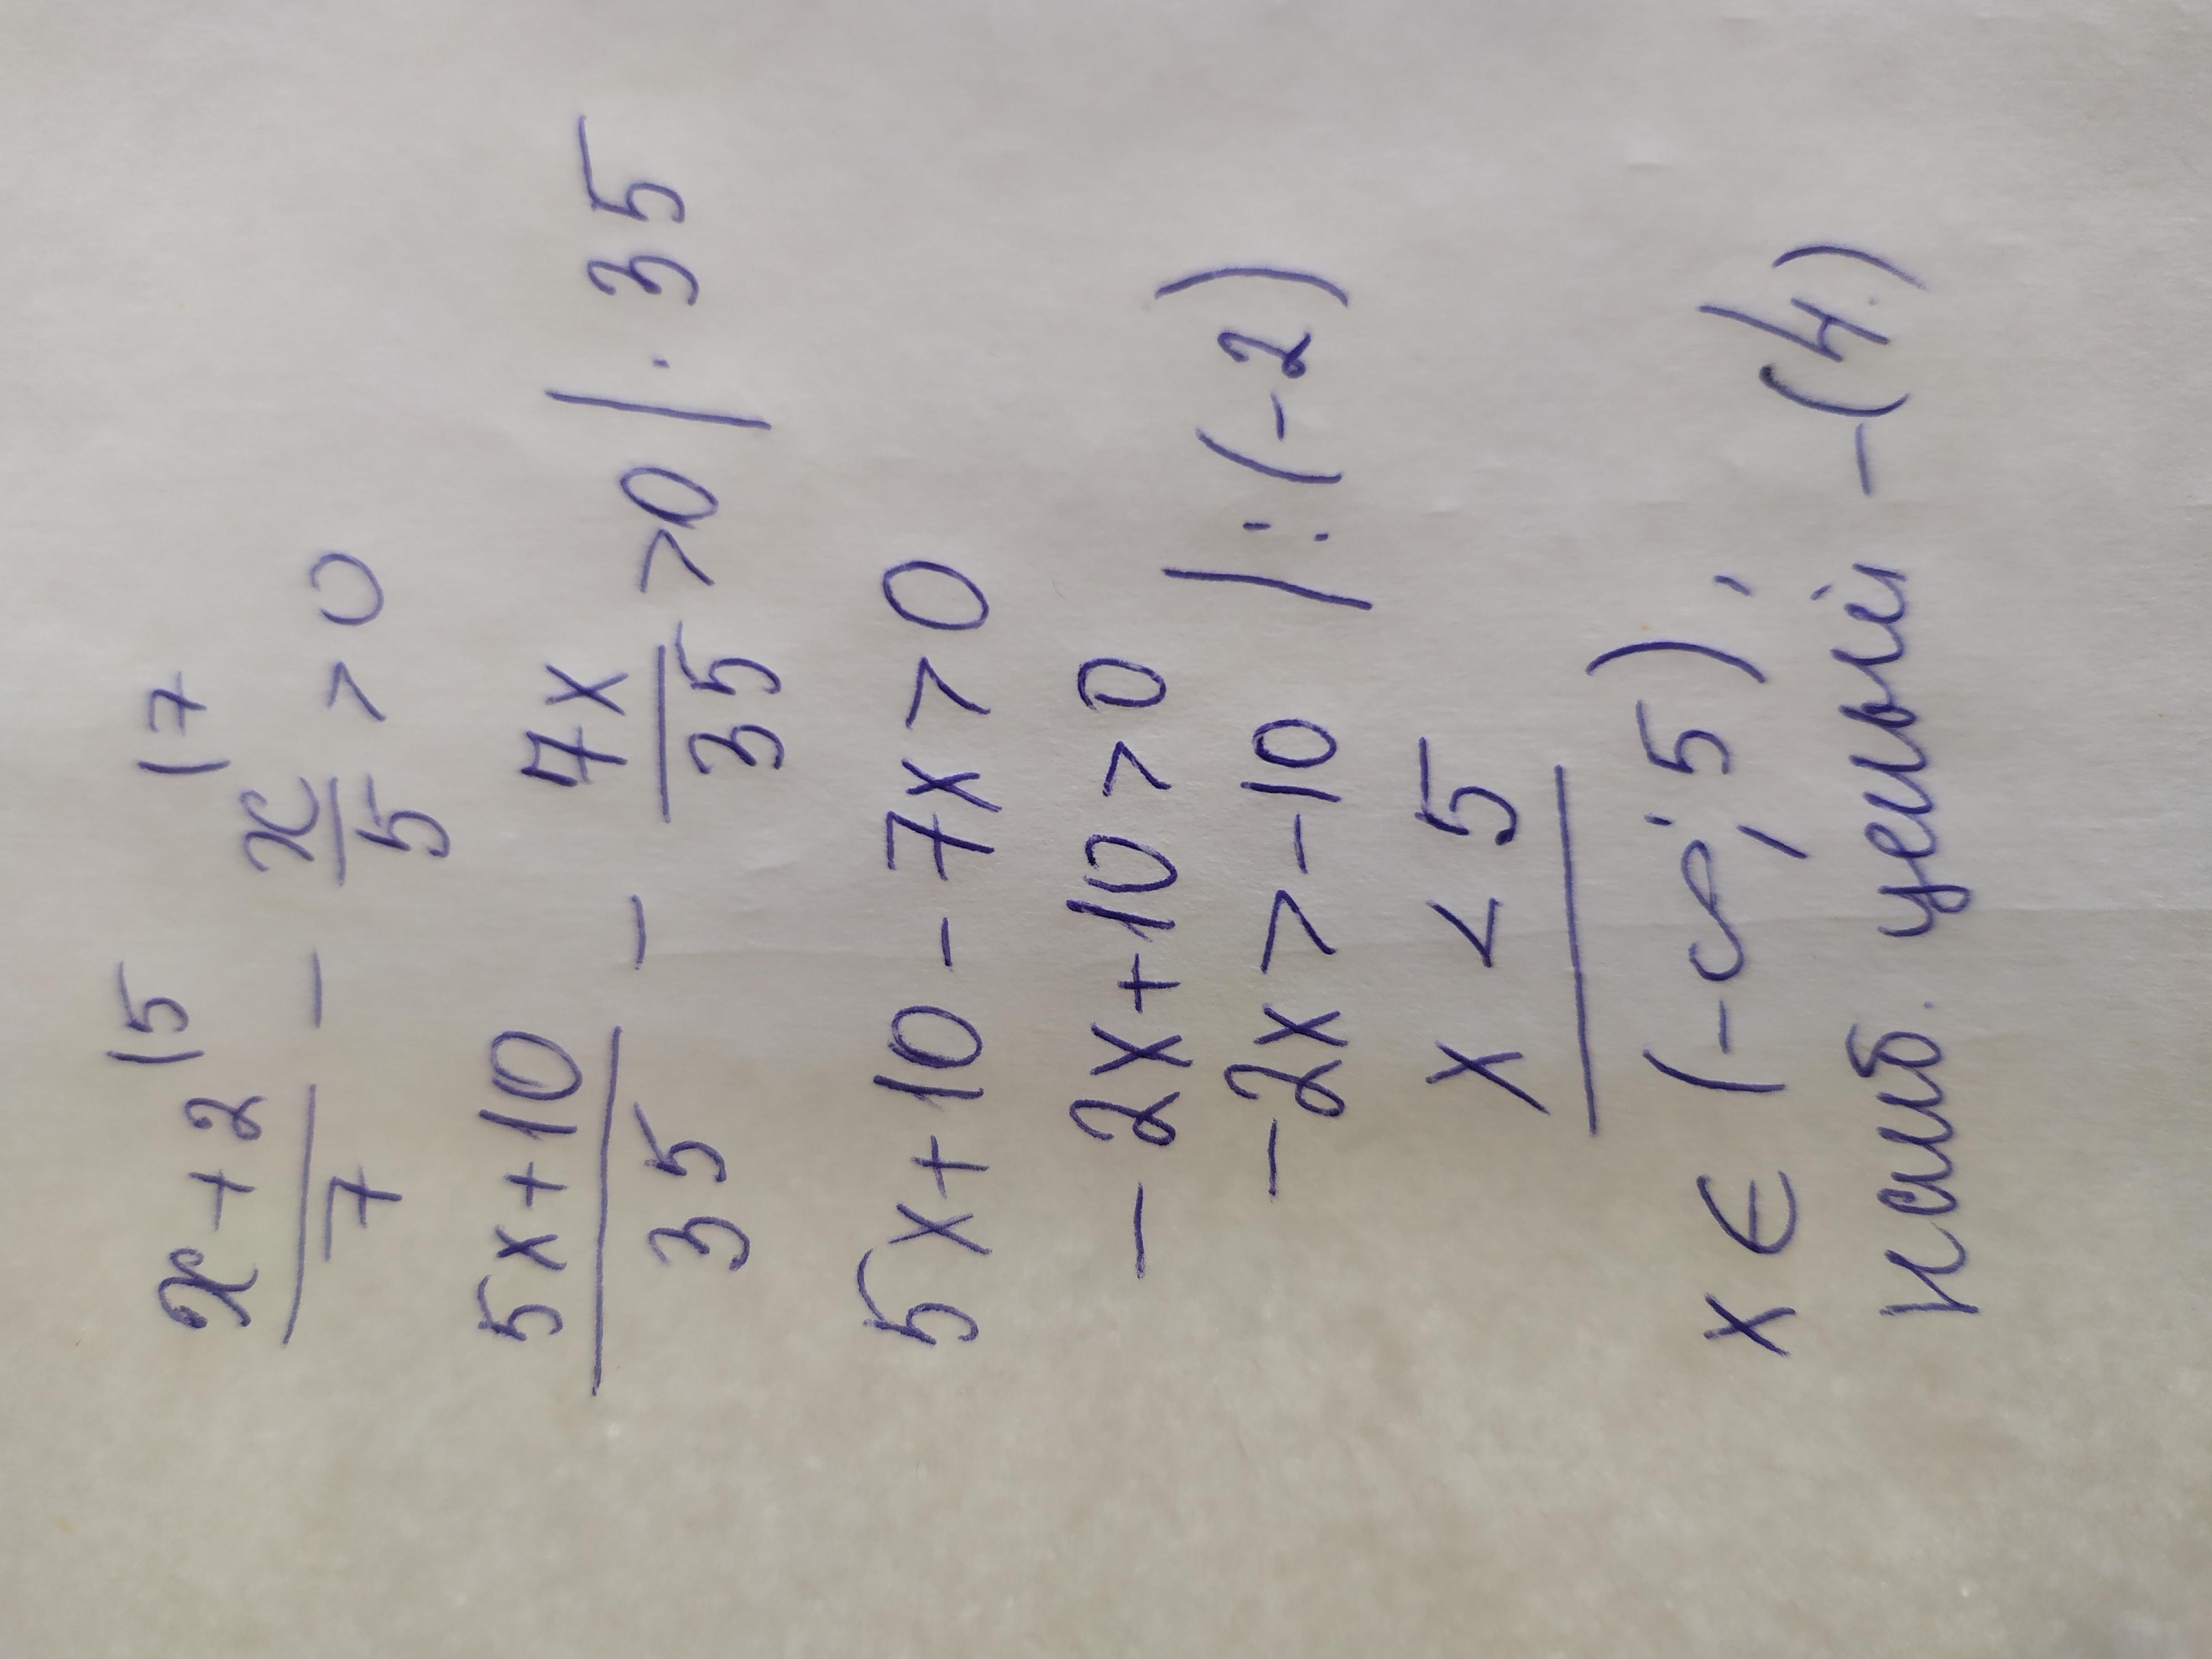 x+2/7 (5 - x/5 (7 > 0
5x+10/35 - 7x/35 > 0 | · 35
5x+10-7x>0
-2x+10>0
-2x>-10 |:(-2)
x<5
x∈(-∞;5);
наиб. целый -(4.)